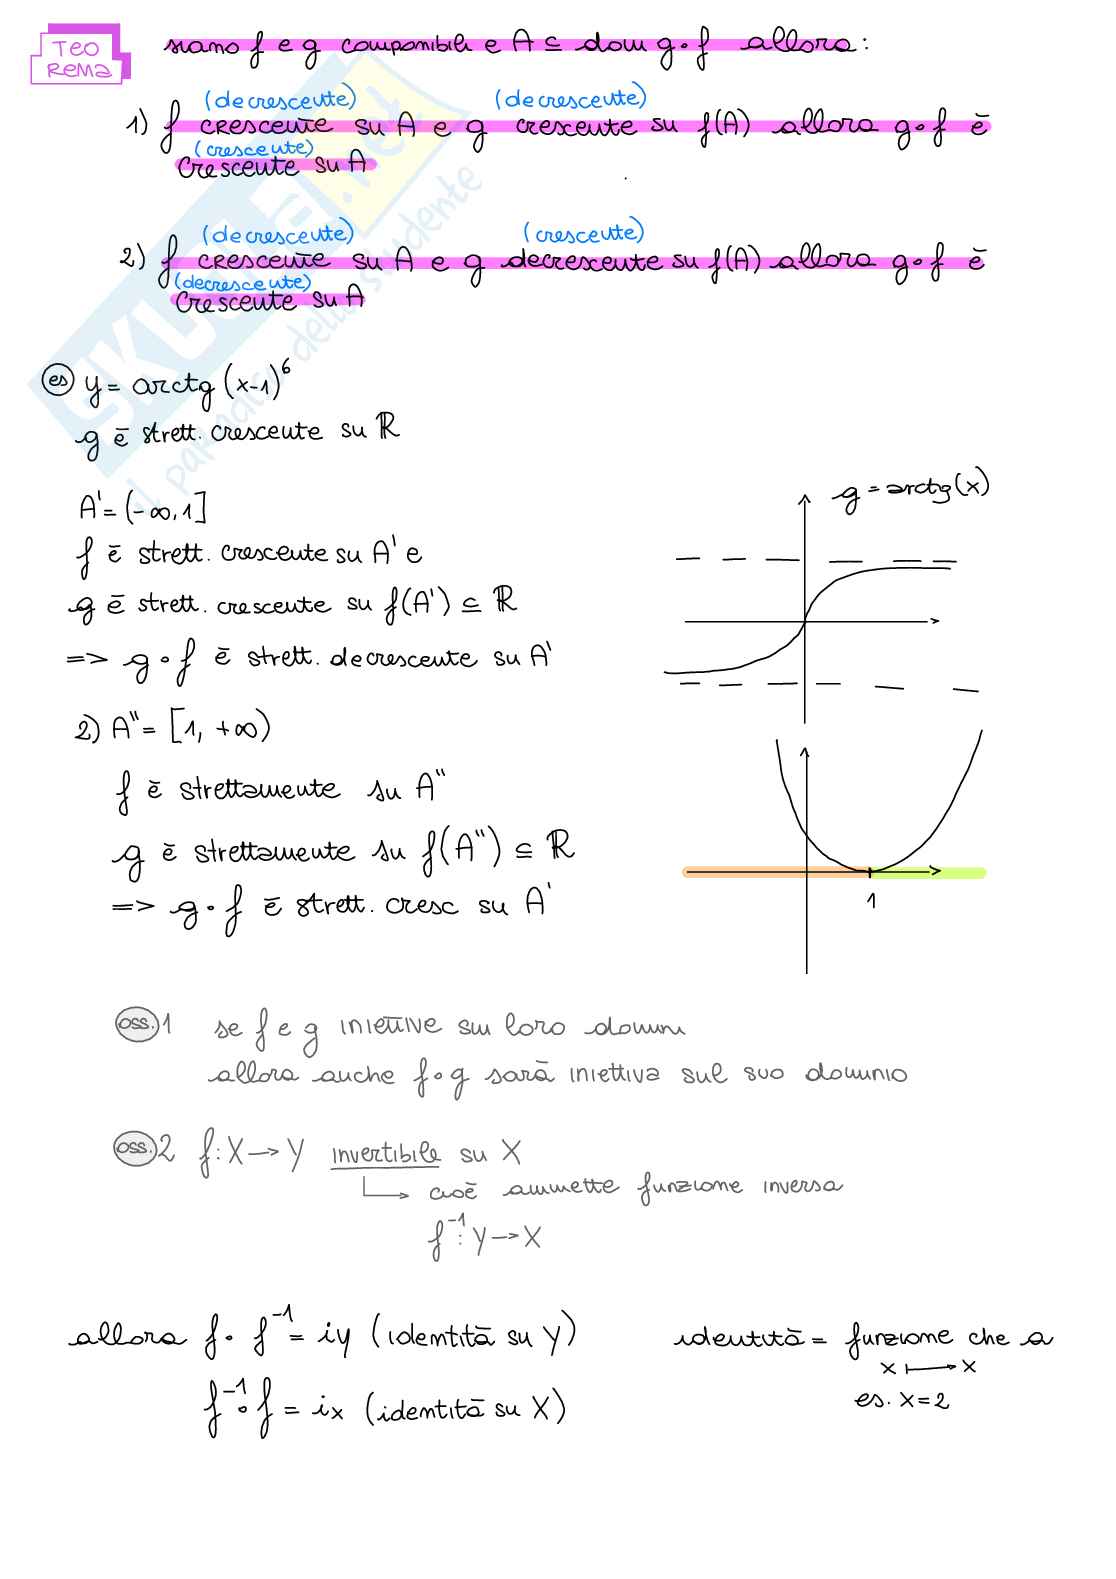 TEO
REMA
siano f e g componibili e A ⊆ dom g∘f allora:
(decrescente) (decrescente)
1) f crescente su A e g crescente su f(A) allora g∘f è
(crescente)
crescente su A
(decrescente) (crescente)
2) f crescente su A e g decrescente su f(A) allora g∘f è
(decrescente)
crescente su A
SKUOLA.net
il paradiso dello studente
es y = arctg (x-1)⁶
g è strett. crescente su ℝ
A' = (-∞, 1]
f è strett. crescente su A' e
g è strett. crescente su f(A') ⊆ ℝ
=> g∘f è strett. decrescente su A'
g = arctg(x)
2) A'' = [1, +∞)
f è strettamente su A''
g è strettamente su f(A'') ⊆ ℝ
=> g∘f è strett. cresc su A'
1
oss.1 se f e g iniettive sui loro domini
allora anche f∘g sarà iniettiva sul suo dominio
oss.2 f: X → Y invertibile su X
cioè ammette funzione inversa
f⁻¹: Y → X
allora f∘f⁻¹ = iy (identità su Y)
f⁻¹∘f = ix (identità su X)
identità = funzione che a
x ↦ x
es. x=2